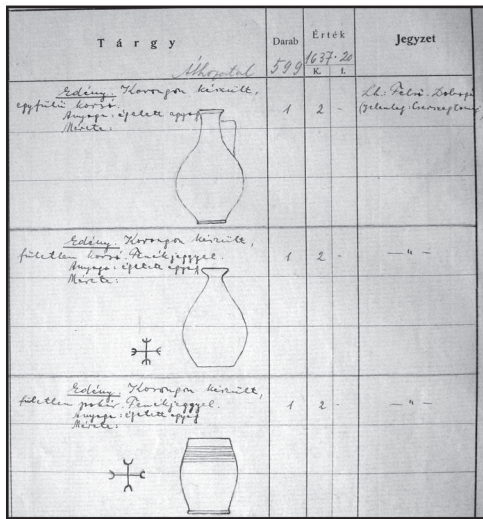 Tárgy Darab Érték Jegyzet
Áthozatal 599 1637·20
K. f.
Edény. Korongon készült,
egyfülű korsó.
Anyaga: égetett agyag
Mérete:
1 2 -
Lh: Felső-Dobogó
(Jelenleg:
Edény. Korongon készült,
fületlen korsó. Fenékjeggyel.
Anyaga: égetett agyag
Mérete:
1 2 - —"—
Edény. Korongon készült,
fületlen pohár. Fenékjeggyel.
Anyaga: égetett agyag
Mérete:
1 2 - —"—